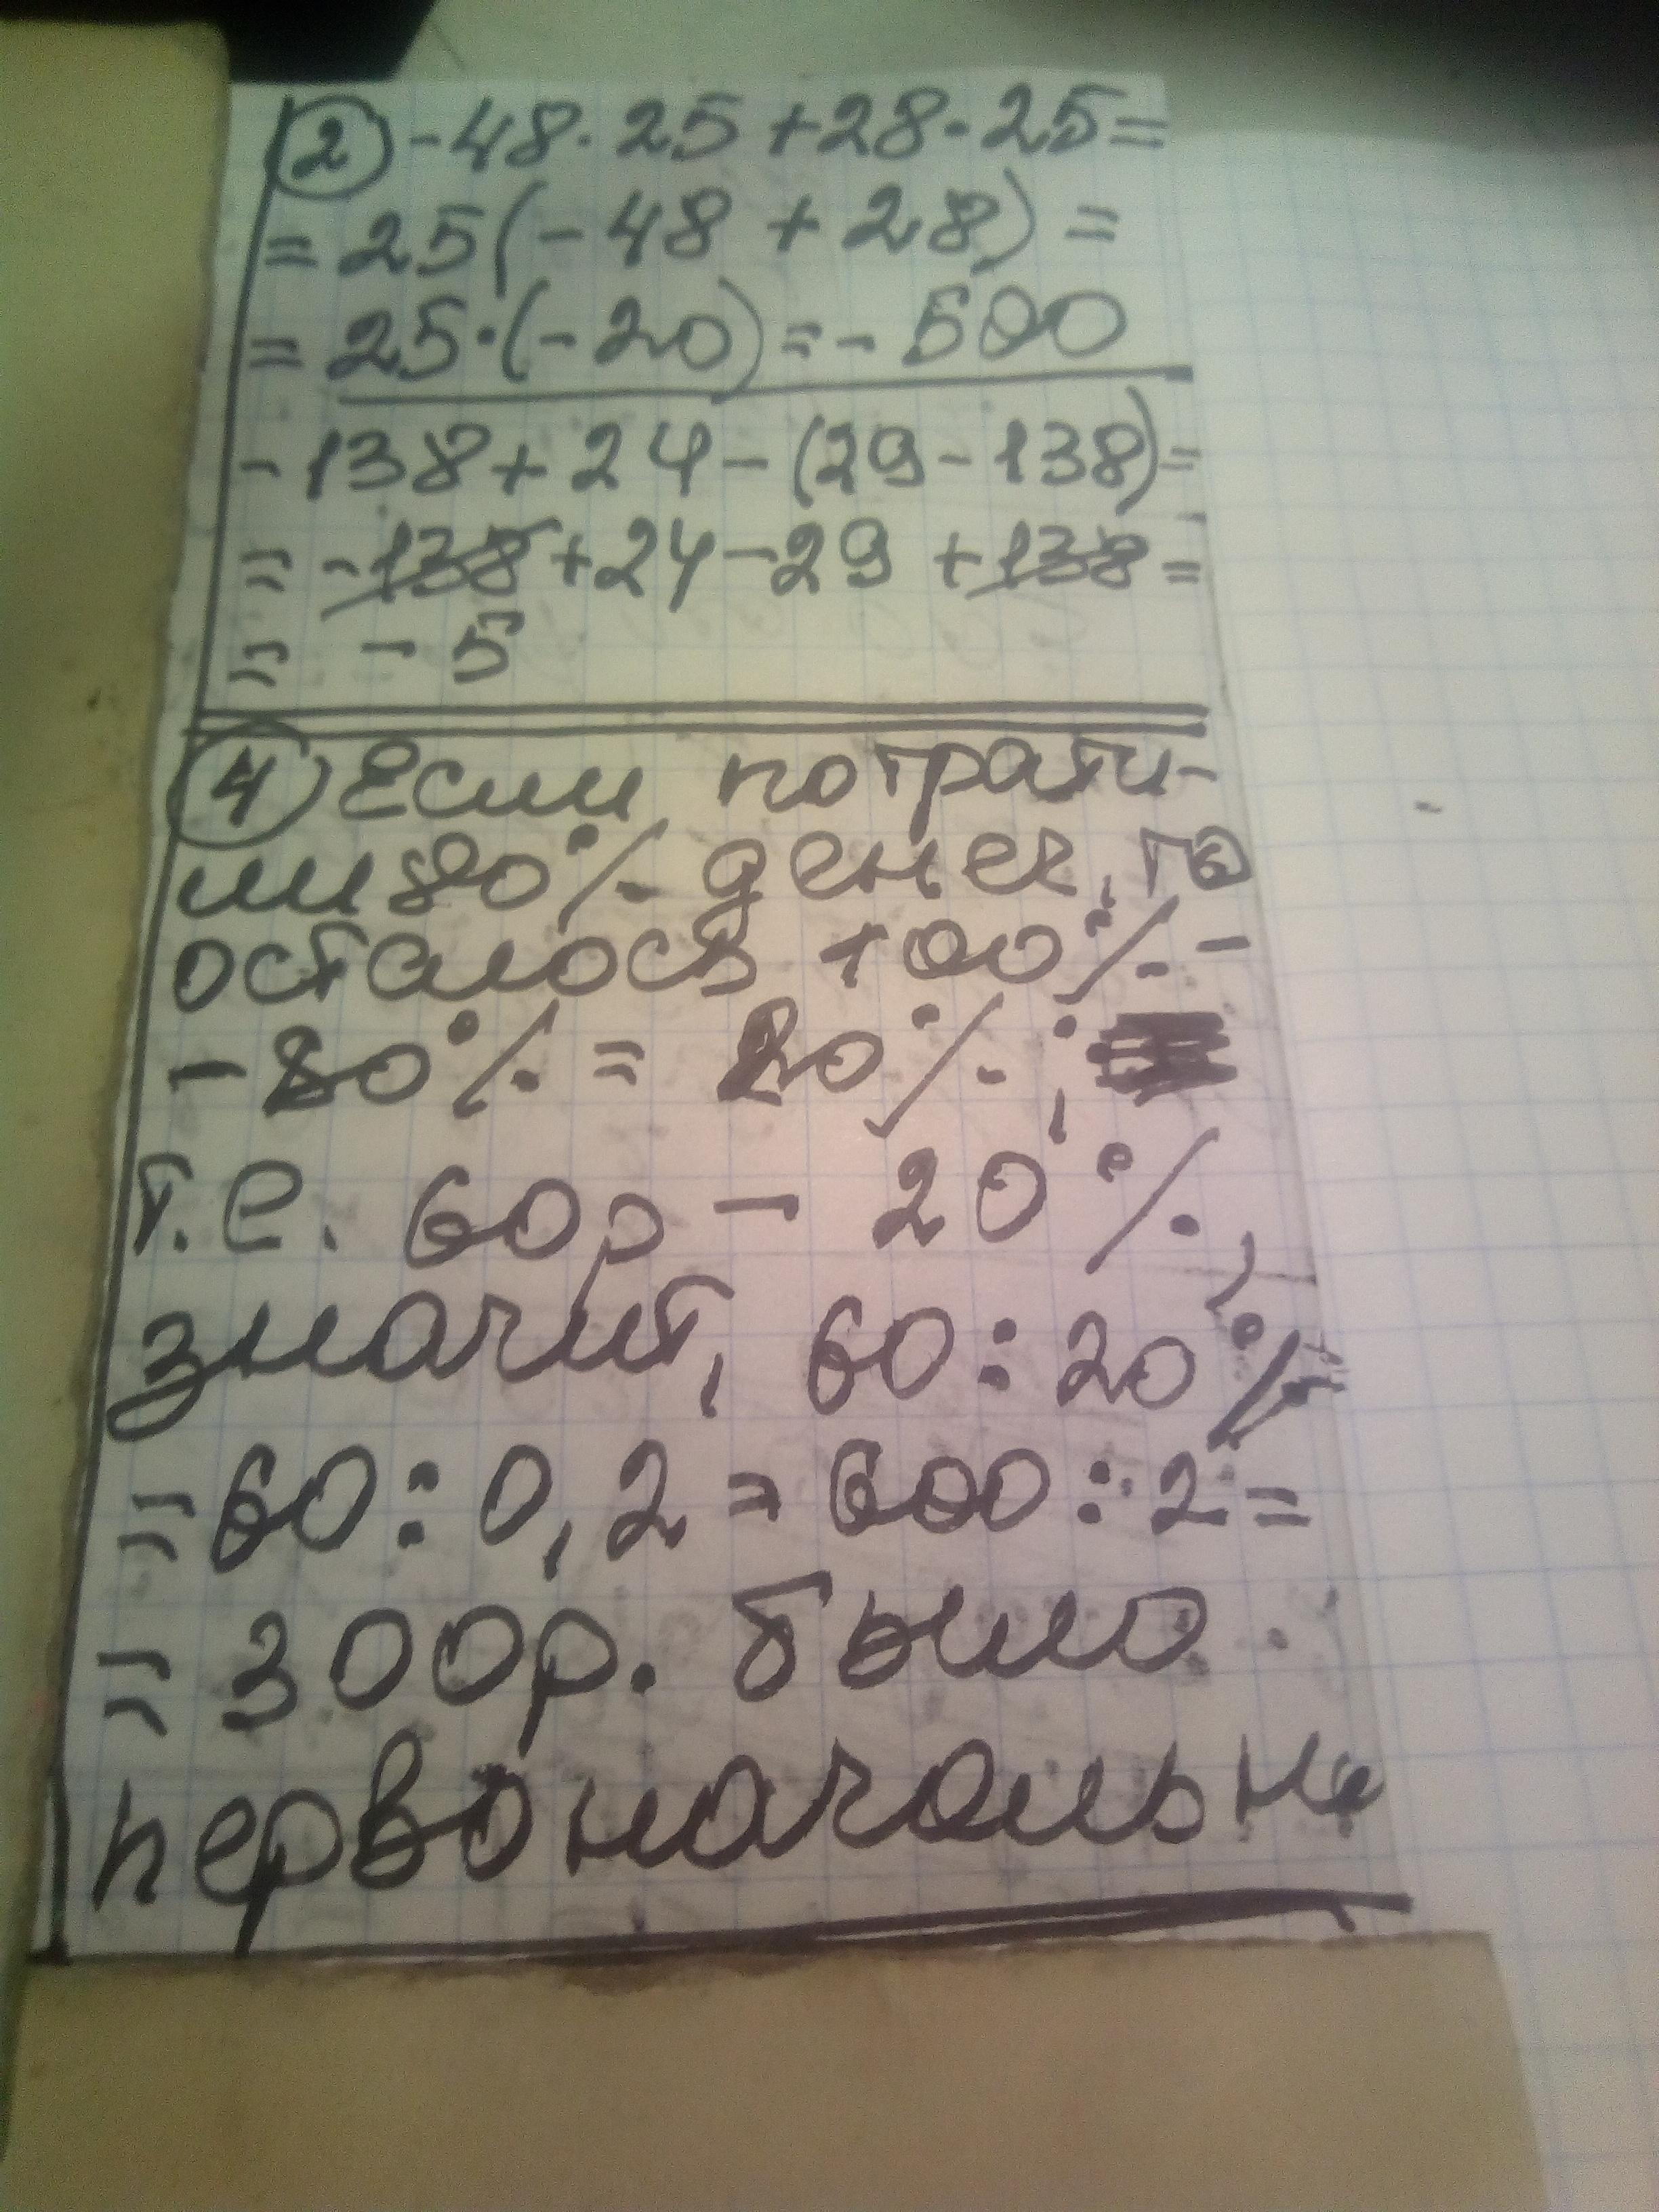 2 -48·25+28·25=
=25(-48+28)=
=25·(-20)=-500
-138+24-(29-138)=
=-138+24-29+138=
=-5
4 Если потрати-
ли 80% денег, то
осталось 100%-
-80%=20%;
т.е. 60р-20%,
значит, 60:20%=
=60:0,2=600:2=
=300р. было
первоначальн